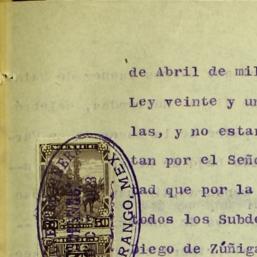 de Abril de mil
Ley veinte y un
las, y no estan
tan por el Seño
tad que por la
todos los Subde
Diego de Zúñiga
RANGO, MEX
50